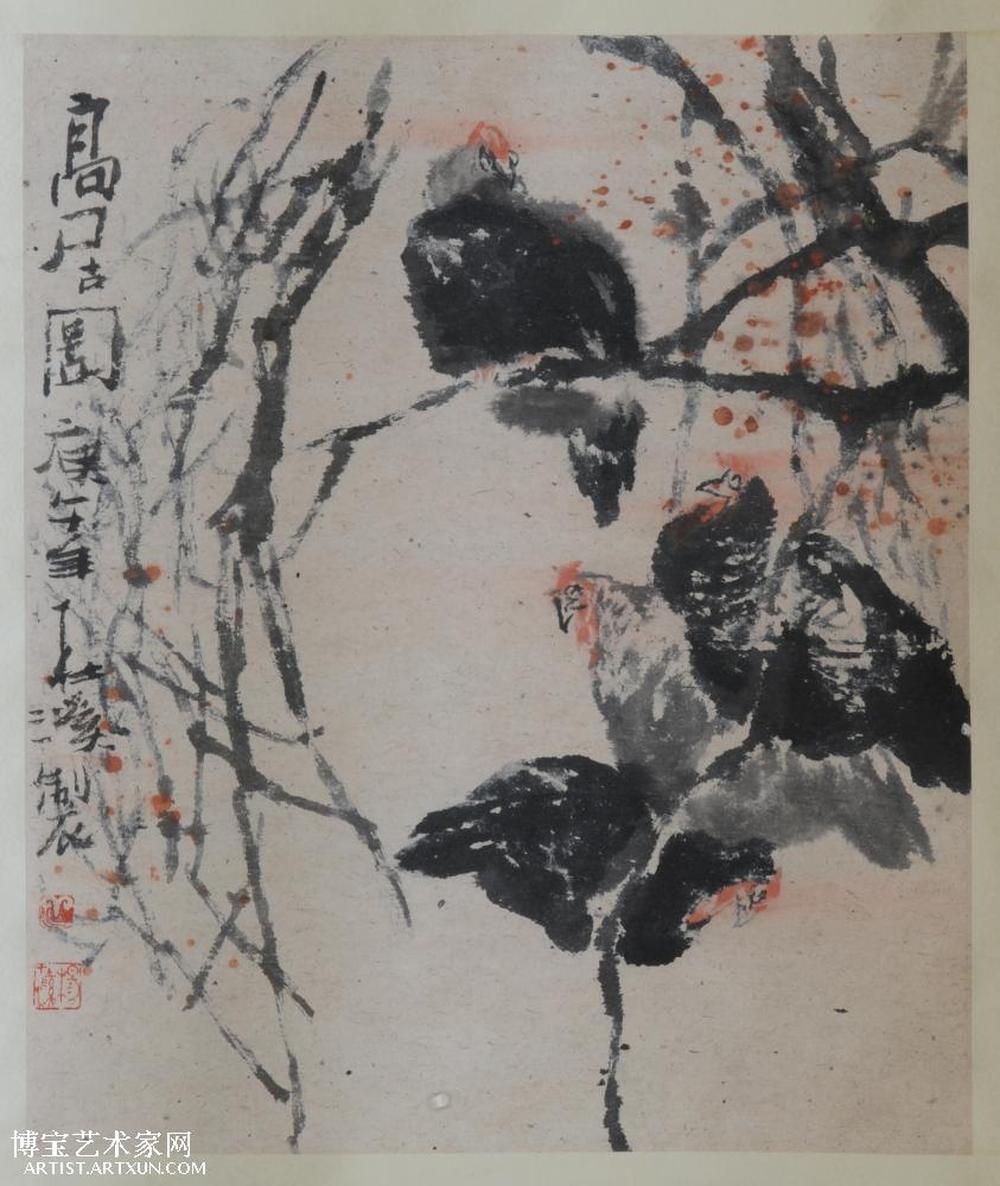 高居吉圖庚午年杜溪製
博宝艺术家网
ARTIST.ARTXUN.COM